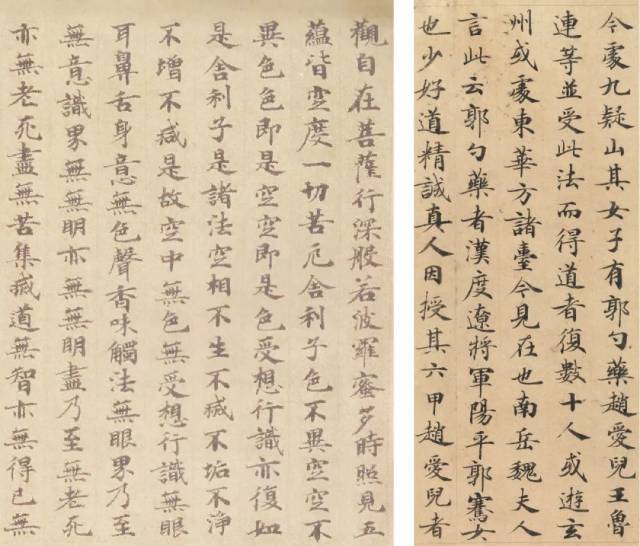 觀自在菩薩行深般若波羅蜜多時照見五
蘊皆空度一切苦厄舍利子色不異空空不
異色色即是空空即是色受想行識亦復如
是舍利子是諸法空相不生不滅不垢不淨
不增不減是故空中無色無受想行識無眼
耳鼻舌身意無色聲香味觸法無眼界乃至
無意識界無無明亦無無明盡乃至無老死
亦無老死盡無苦集滅道無智亦無得已無
今處九疑山其女子有郭勺藥趙愛兒王魯
連等並受此法而得道者復數十人或遊玄
州或處東華方諸臺今見在也南岳魏夫人
言此云郭勺藥者漢度遼將軍陽平郭騫女
也少好道精誠真人因授其六甲趙愛兒者